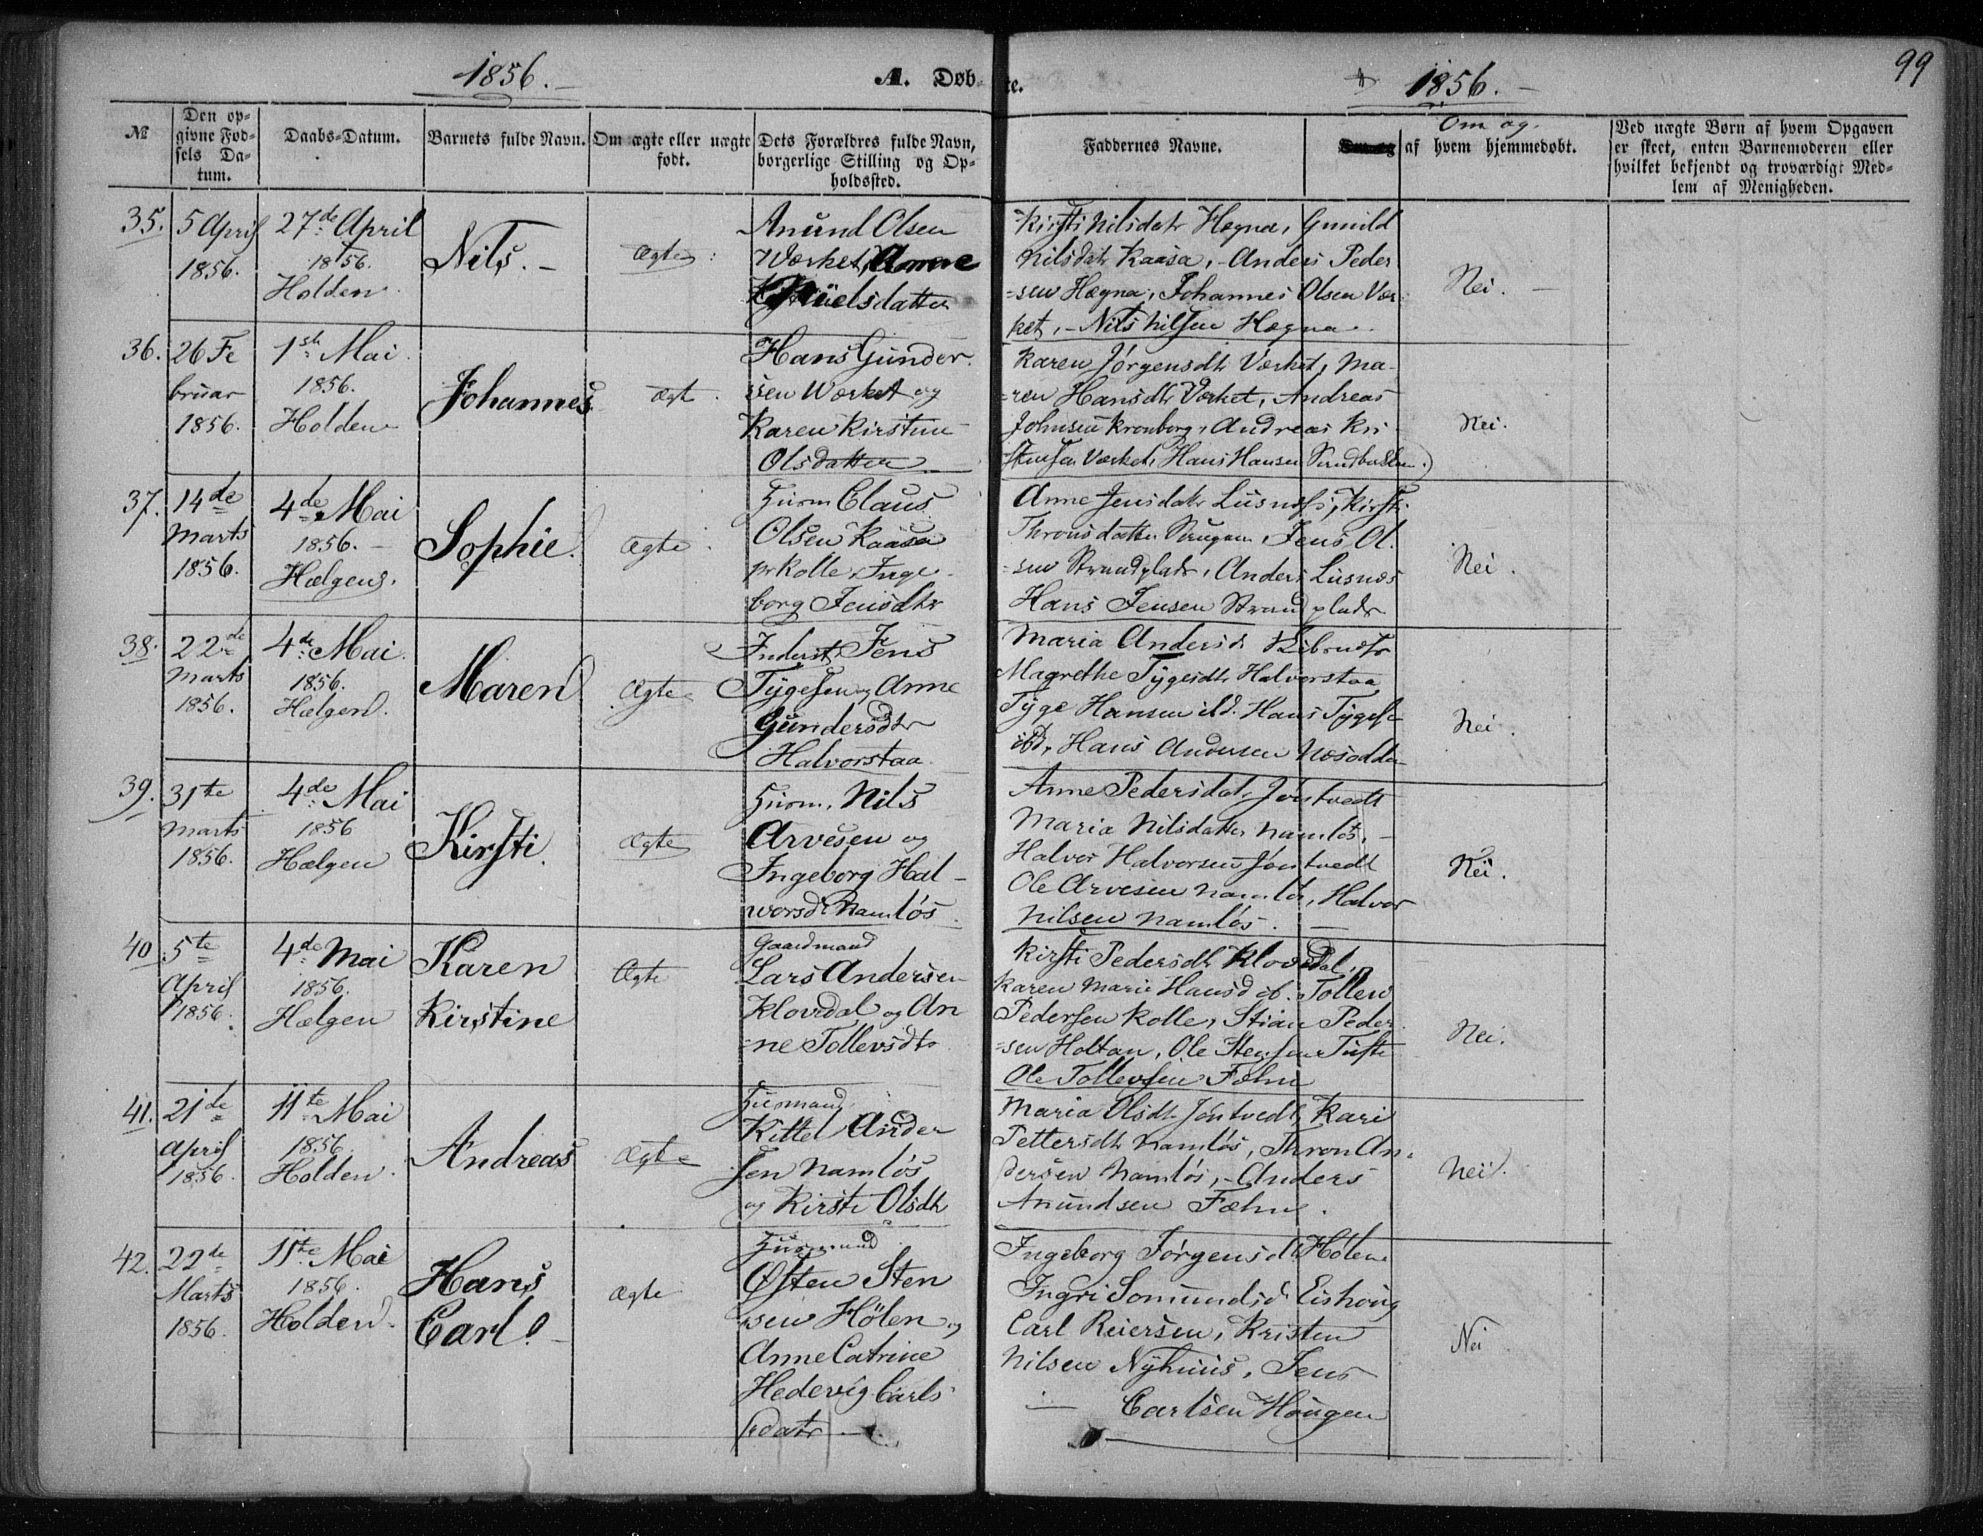 1856.
A. Døbte.
1856.
99
№
Den opgivne Fødsels Datum.
Daabs-Datum.
Barnets fulde Navn.
Om ægte eller uægte født.
Dets Forældres fulde Navn, borgerlige Stilling og Opholdssted.
Faddernes Navne.
Om og
af hvem hjemmedøbt.
Ved uægte Børn af hvem Opgaven er skeet, enten Barnemoderen eller hvilket bekjendt og troværdigt Medlem af Menigheden.
35.
5 April
1856.
27de April
1856.
Holden
Nils.
Ægte
Anund Olsen
Værket, Anne
Nielsdatter
Kirsti Nilsdatr Hægna, Gunild
Nilsdatr Kaasa, Anders Peder
=sen Hægna, Johannes Olsen Vær
ket, Nils Nilsen Hægna.
Nei.
36.
26 Fe
bruar
1856.
1ste Mai
1856.
Holden
Johannes
Ægte
Hans Gunder
sen Værket og
Karen Kirstine
Olsdatter
Karen Jørgensdtr Værket, Ma-
=ren Hansdtr Værket, Andreas
Johnsen Kronborg, Andreas Kri
stensen Værket, Hans Hansen
Nei.
37.
14de
Marts
1856.
4de Mai
1856.
Hælgens.
Sophie.
Ægte
Husm Claus
Olsen Kaasa
Kolle, Inge
borg Jensdtr
Anne Jensdatr Lusnæs, Kirsti
Thronsdatter, Jens Ol
=sen Strandplads, Anders Lusnæs
Hans Jensen Strandplads
Nei.
38.
22de
Marts
1856.
4de Mai
1856.
Hælgen.
Maren
Ægte
Inderst Jens
Tygesen og Anne
Gundersdtr
Halvorstaa
Maria Andersd
Magrethe Tygesdtr Halvorstaa
Tyge Hansen ibd. Hans Tygese
ibd, Hans Andersen Næsodden
Nei.
39.
31te
Marts
1856.
4de Mai
1856
Hælgen
Kirsti.
Ægte
Husm. Nils
Arvesen og
Ingeborg Hal-
vorsdr Namløs.
Anne Pedersdatr Jøntvedt
Maria Nilsdatter Namløs,
Halvor Halvorsen Jøntvedt
Ole Arvesen Namløs, Halvor
Nilsen Namløs.
Nei.
40
5te
April
1856.
4de Mai
1856.
Hælgen
Karen
Kirstine
Ægte
Gaardmand
Lars Andersen
Klovdal og An
=ne Tollevsdtr
Kirsti Pedersdtr Klovdal,
Karen Marie Hansd ib. Tollev
Pedersen Kolle, Stian Peder
=sen Holtan, Ole Stensen Tufte
Ole Tollevsen Fæhn
Nei.
41.
21de
April
1856.
11te Mai
1856.
Holden.
Andreas
Ægte
Husmand
Kittel Ander
sen Namløs
og Kirsti Olsdtr
Maria Olsdtr Jøntvedt, Kari
Pettersdtr Namløs, Thron An-
dersen Namløs, Anders
Anundsen Fæhn.
Nei.
42.
22de
Marts
1856.
11te Mai
1856.
Holden.
Hans
Carl.
Ægte
Husmand
Østen Sten
sen Hölen og
Anne Catrine
Hedevig Carls
datr
Ingeborg Jørgensdtr Hölen
Ingri Somundsd
Carl Reiersen, Kristen
Nilsen Nyhuus, Jens
Carlsen Hougen
Nei